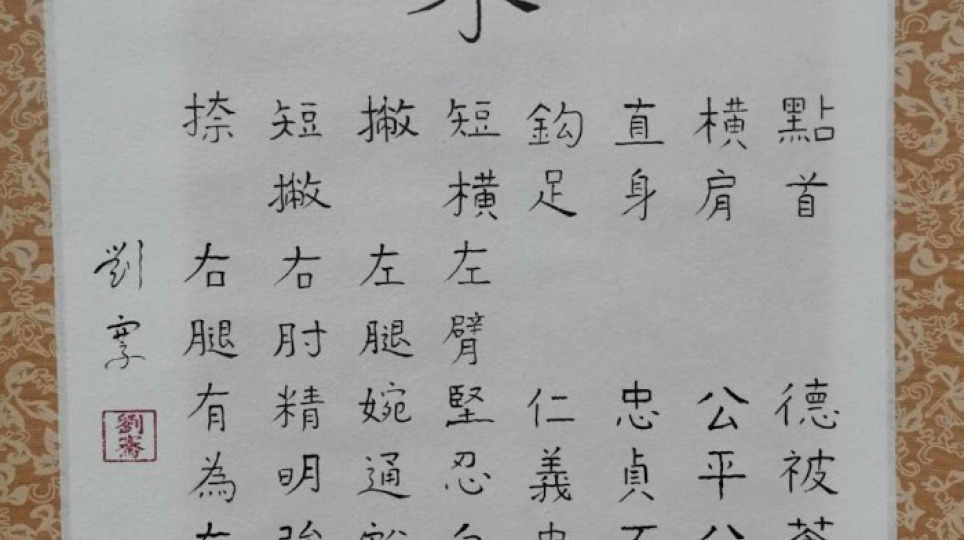 點首 德被
橫肩 公平公
直身 忠貞不
鈎足 仁義忠
短橫 左臂堅忍
撇 左腿婉通
短撇 右肘精明強
捺 右腿有為有
劉
劉騫